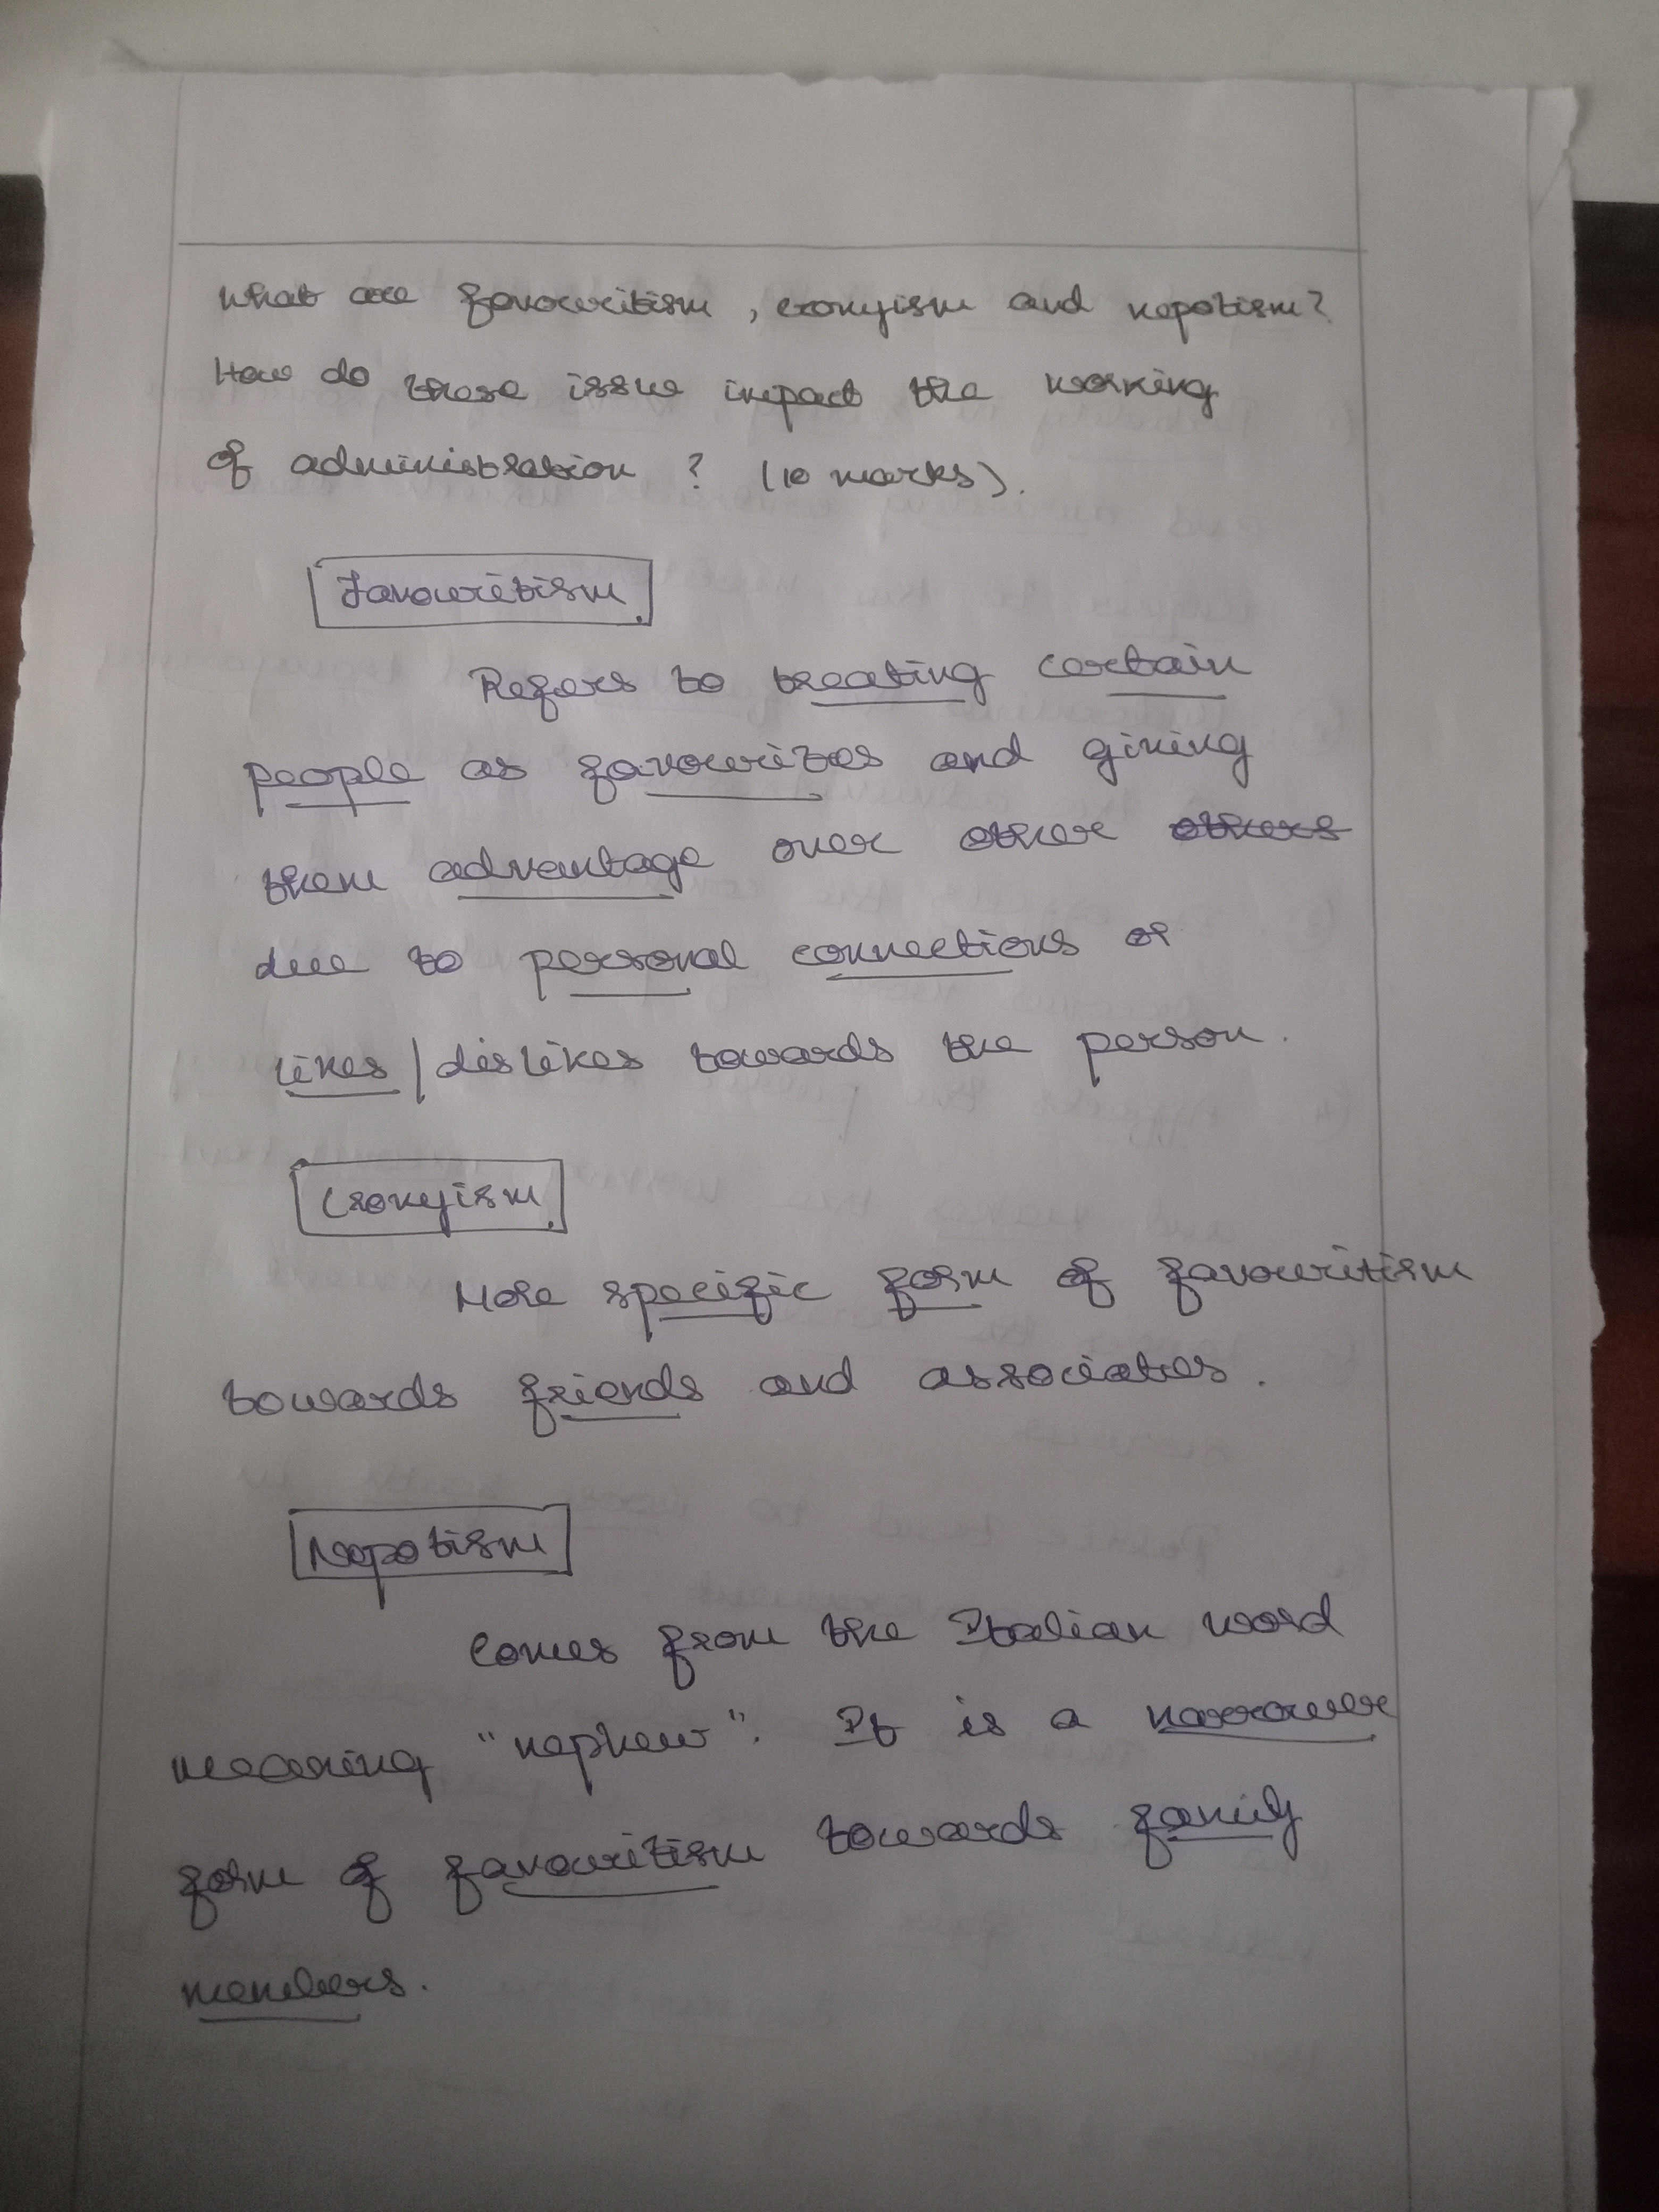 What are favouritism, cronyism and nepotism?
How do these issue impact the working
of administration? (10 marks).
Favouritism.
Refers to treating certain
people as favourites and giving
them advantage over other others
due to personal connections or
likes/dislikes towards the person.
Cronyism.
More specific form of favouritism
towards friends and associates.
Nepotism
Comes from the Italian word
meaning "nephew". It is a narrower
form of favouritism towards family
members.